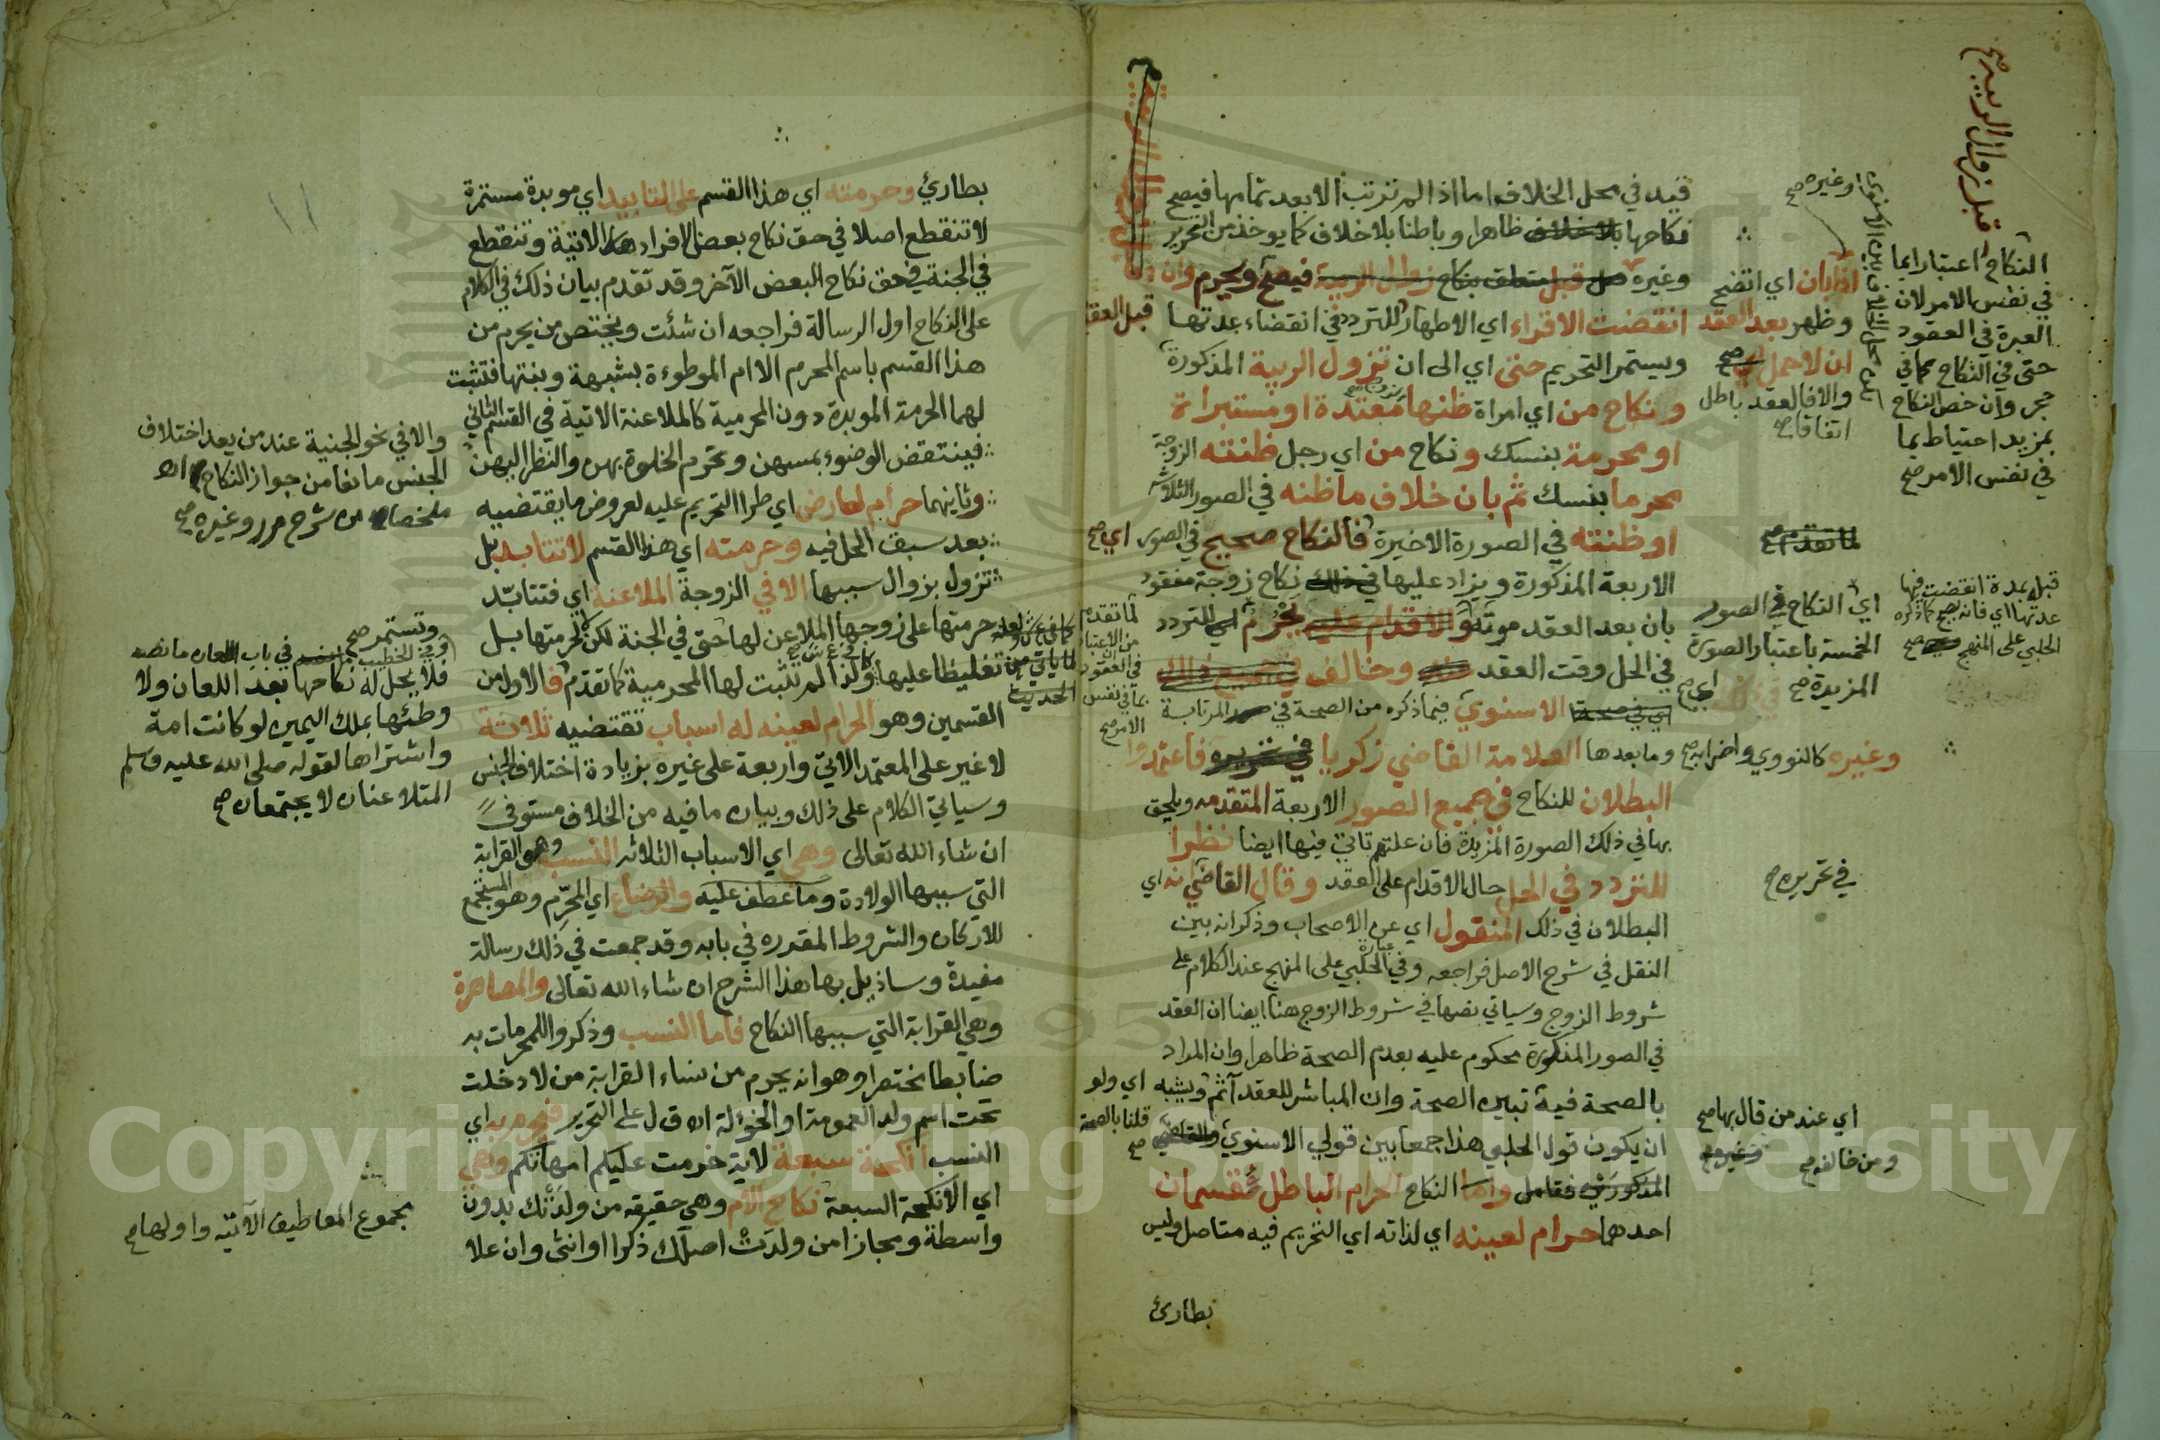 قبل زوال الريبة صح
قيد في محل الخلاف واما اذا لم تترتب الا بعد تمامها فيصح
نكاحها بلا خلاف ظاهرا وباطنا بلا خلاف كما يوخذ من التحرير
وغيره قبل زوال الريبة فيصح ويحرم وان
انقضت الاقراء اي الاطهار للتردد في انقضاء عدتها
ويستمر التحريم حتى اي الى ان تزول الريبة المذكورة
ونكاح من اي امراة ظنها معتدة او مستبراة
او محرمة بنسك ونكاح من اي رجل ظنته الزوجة
محرما بنسك ثم بان خلاف ما ظنه في الصور الثلاثة
او ظنته في الصورة الاخيرة فالنكاح صحيح في الصور اي صح
الاربعة المذكورة ويزاد عليها في ذلك نكاح زوجة مفقود
بان بعد العقد موته والاقدام عليه يحرم اي للتردد
في الحل وقت العقد وخالف في جميع ذلك
الاسنوي فيما ذكره من الصحة في المرتابة
وغيره كالنووي واضرابه صح وما بعدها العلامة القاضي زكريا في تحريره فاعتمدوا
البطلان للنكاح في جميع الصور الاربعة المتقدمه ويلحق
بها في ذلك الصورة المزيدة فان علتهم تاتي فيها ايضا نظرا
للتردد في الحل حال الاقدام على العقد وقال القاضي انه اي
البطلان في ذلك المنقول اي عن الاصحاب وذكر انه بين
النقل في شرح الاصل فراجعه وفي عبارة الحلبي على المنهج عند الكلام على
شروط الزوج وسياتي نصها في شروط الزوج هنا ايضا ان العقد
في الصور المذكورة محكوم عليه بعدم الصحة ظاهرا وان المراد
بالصحة فيه تبين الصحة وان المباشر للعقد آثم ويشبه اي ولو
ان يكون قول الحلبي هذا جمعا بين قولي الاسنوي والقاضي قلنا بالصحة صح
المذكورين فتامل واما النكاح الحرام الباطل فقسمان
احدهما حرام لعينه اي لذاته اي التحريم فيه متاصل وليس
بطارئ
او وغيره صح
اذا بان اي اتضح
وظهر بعد العقد
ان لا حمل صح
والا فالعقد باطل
اتفاقا صح
النكاح اعتبارا بما
في نفس الامر لان
العبرة في العقود
حتى في النكاح بما في
حجر وان خص النكاح
بمزيد احتياط بما
في نفس الامر صح
لما تقدم صح
قبل بمدة انقضت فيها
عدتها اي فانه يصح كما ذكره
الحلبي على المنهج صح
اي النكاح في الصور
الخمسة باعتبار الصورة
المزيدة صح
في تحريره صح
اي عند من قال بها صح
ومن خالفه صح
وغيره صح
لما تقدم
من الاعتبار
في العقود
بما في نفس
الامر صح
بطارئ وحرمته اي هذا القسم على التابيد اي موبدة مستمرة
لا تنقطع اصلا في حق نكاح بعض الافراد الاتية وتنقطع
في الجنة في حق نكاح البعض الآخر وقد تقدم بيان ذلك في الكلام
على النكاح اول الرسالة فراجعه ان شئت ويختص من يحرم من
هذا القسم باسم المحرم الا ام الموطوءة بشبهة وبنتها فتثبت
لهما الحرمة الموبدة دون المحرمية كالملاعنة الاتية في القسم الثاني
فينتقض الوضوء بمسهن وتحرم الخلوة بهن والنظر اليهن
وثانيهما حرام لعارض اي طرا التحريم عليه لعروض ما يقتضيه
بعد سبق الحل فيه وحرمته اي هذا القسم لا تتابد بل
تزول بزوال سببها الا في الزوجة الملاعنة اي فتتابد
حرمتها على زوجها الملاعن لها حتى في الجنة لكن لا لحرمتها بل
تغليظا عليها ولذا لم تثبت لها المحرمية كما تقدم فالاول من
القسمين وهو الحرام لعينه له اسباب تقتضيه ثلاثة
لا غير على المعتمد الاتي واربعة على غيره بزيادة اختلاف الجنس
وسياتي الكلام على ذلك وبيان ما فيه من الخلاف مستوفى
ان شاء الله تعالى وهي اي الاسباب الثلاثه النسب وهو القرابة
التي سببها الولادة وما عطف عليه والرضاع اي المحرم وهو المستجمع
للاركان والشروط المقرره في بابه وقد جمعت في ذلك رسالة
مفيدة وساذيل بها هذا الشرح ان شاء الله تعالى والمصاهرة
وهي القرابة التي سببها النكاح فاما النسب وذكروا للمحرمات به
ضابطا مختصرا وهو انه يحرم من نساء القرابة من لا دخلت
تحت اسم ولد العمومة او الخؤلة اه ق ل على التحرير فيحرم به اي
النسب انكحة سبعة لاية حرمت عليكم امهاتكم وهي
اي الانكحة السبعة نكاح الام وهي حقيقة من ولدتك بدون
واسطة ومجازا من ولدت اصلك ذكرا او انثى وان علا
والا في نحو الجنية عند من يعد اختلاف
الجنس مانعا من جواز النكاح اه
ملخصا من شرح م ر وغيره صح
وتستمر صح
فلا يحل له نكاحها بعد اللعان ولا
وطئها بملك اليمين لو كانت امة
واشتراها لقوله صلى الله عليه وسلم
المتلاعنان لا يجتمعان صح
مجموع المعاطيف الآتية واولها صح
Copyright © King Saud University